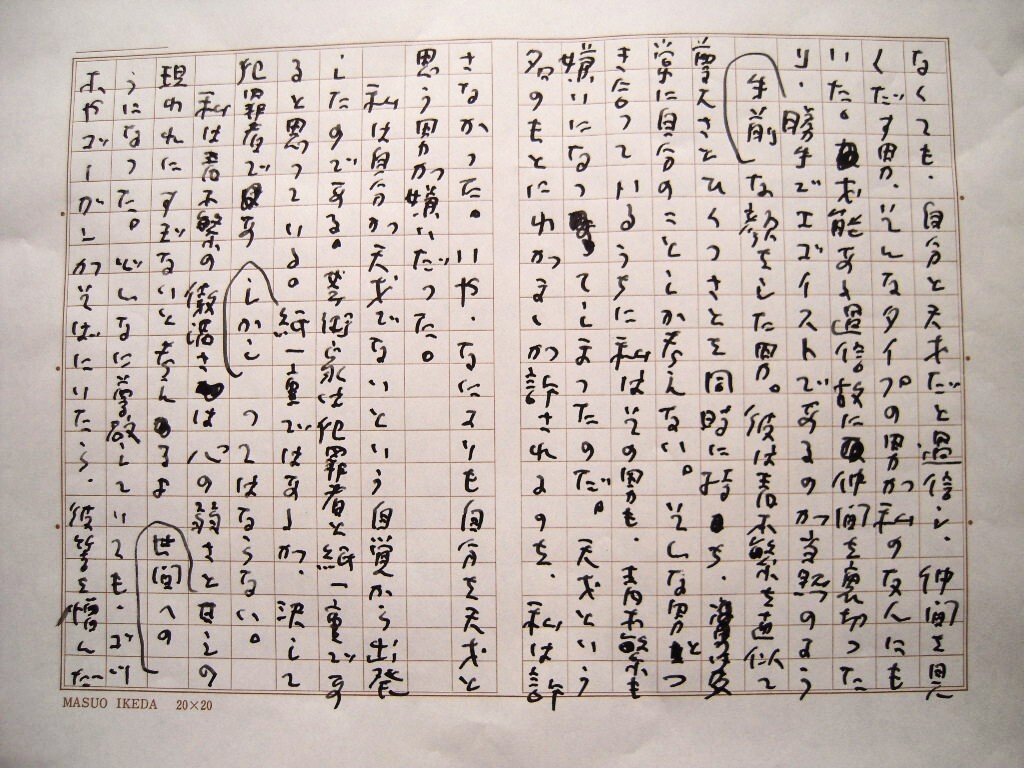 なくても、自分を天才だと過信し、仲間を見
くだす男が、そんなタイプの男が私のなんにも
いた。才能ある過信故に仲間を裏切った
り、勝手でエゴイストであるのが当然のよう
手前
な顔をした男が。彼は青木繁を真似て
さとひくつさとを同時に持ち、
常に自分のことしか考えない。そんな男とつ
き合っているうちに私はその男も、青木繁も
嫌いになってしまったのだ。天才という
名のもとにわがままが許されるのを、私は許
さなかった。いや、なによりも自分を天才と
思う男が嫌いだった。
私は自分が天才でないという自覚から出発
したのである。芸術家は犯罪者と紙一重であ
ると思っている。紙一重ではあるが、決して
しかし
犯罪者であってはならない。
私は青木繁の傲慢さは心の弱さと甘えの
世間への
現われにすぎないと考えるよ
うになった。どんなにしていても、ゴッ
ホやゴーギャンがそばにいたら、彼等を憎んだ
MASUO IKEDA 20×20